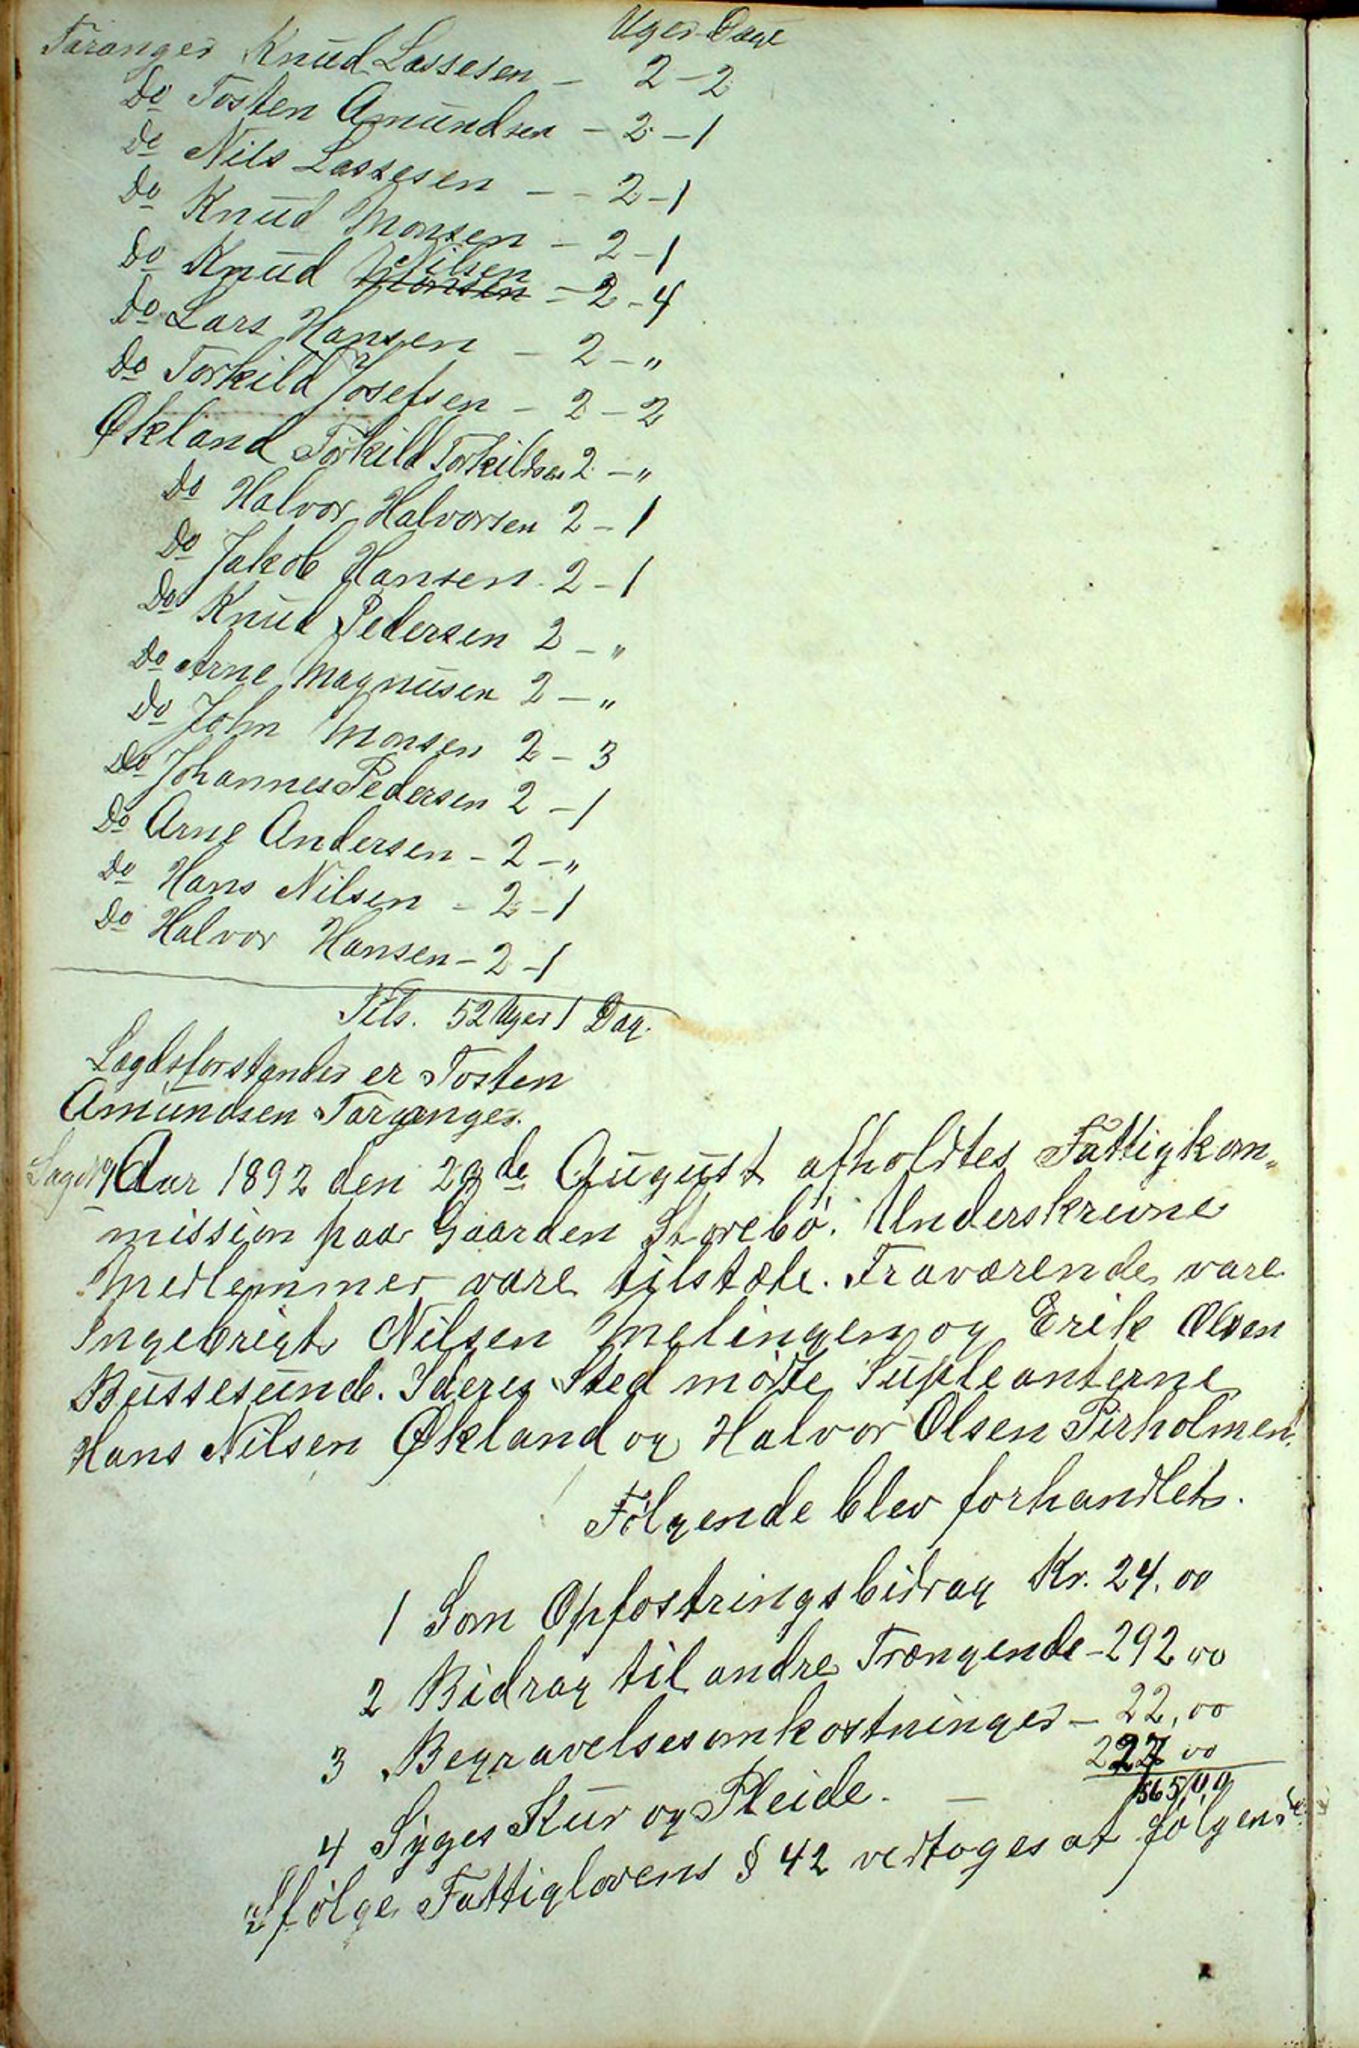 Uger Dage
Taranger Knud Lassesen - 2 - 2
Do Tosten Amundsen - 2 - 1
Do Nils Lassesen - - 2 - 1
Do Knud Monsen - 2 - 1
Do Knud Monsen Nilsen - 2 - 4
Do Lars Hansen - 2 - "
Do Torkild Josefsen - 2 - 2
Økland Torkild Torkildsen 2 - "
Do Halvor Halvorsen 2 - 1
Do Jakob Hansen - 2 - 1
Do Knud Pedersen 2 - "
Do Arne Magnusen 2 - "
Do John Monsen 2 - 3
Do Johannes Pedersen 2 - 1
Do Arne Andersen - 2 - "
Do Hans Nilsen - 2 - 1
Do Halvor Hansen - 2 - 1
Tils. 52 Uger 1 Dag.
Lægdsforstander er Tosten
Amundsen Taranger.
Aar 1892 den 29de August afholdtes Fattigkom„
mission paa Gaarden Storebø. Underskrevne
Medlemmer vare tilstæde. Fraværende vare
Ingebrigt Nilsen Melingen og Erik Olsen
Bussesund. I deres Sted mødte Supleanterne
Hans Nilsen Økland og Halvor Olsen Pirholmen.
Følgende blev forhandlet.
1 Som Opfostringsbidrag Kr. 24.00
2 Bidrag til andre Trængende - 292,00
3 Begravelsesomkostninger - 22,00
4 Syges Kur og Pleide. - 227 00
565,00
Ifølge Fattiglovens § 42 vedtoges at følgende